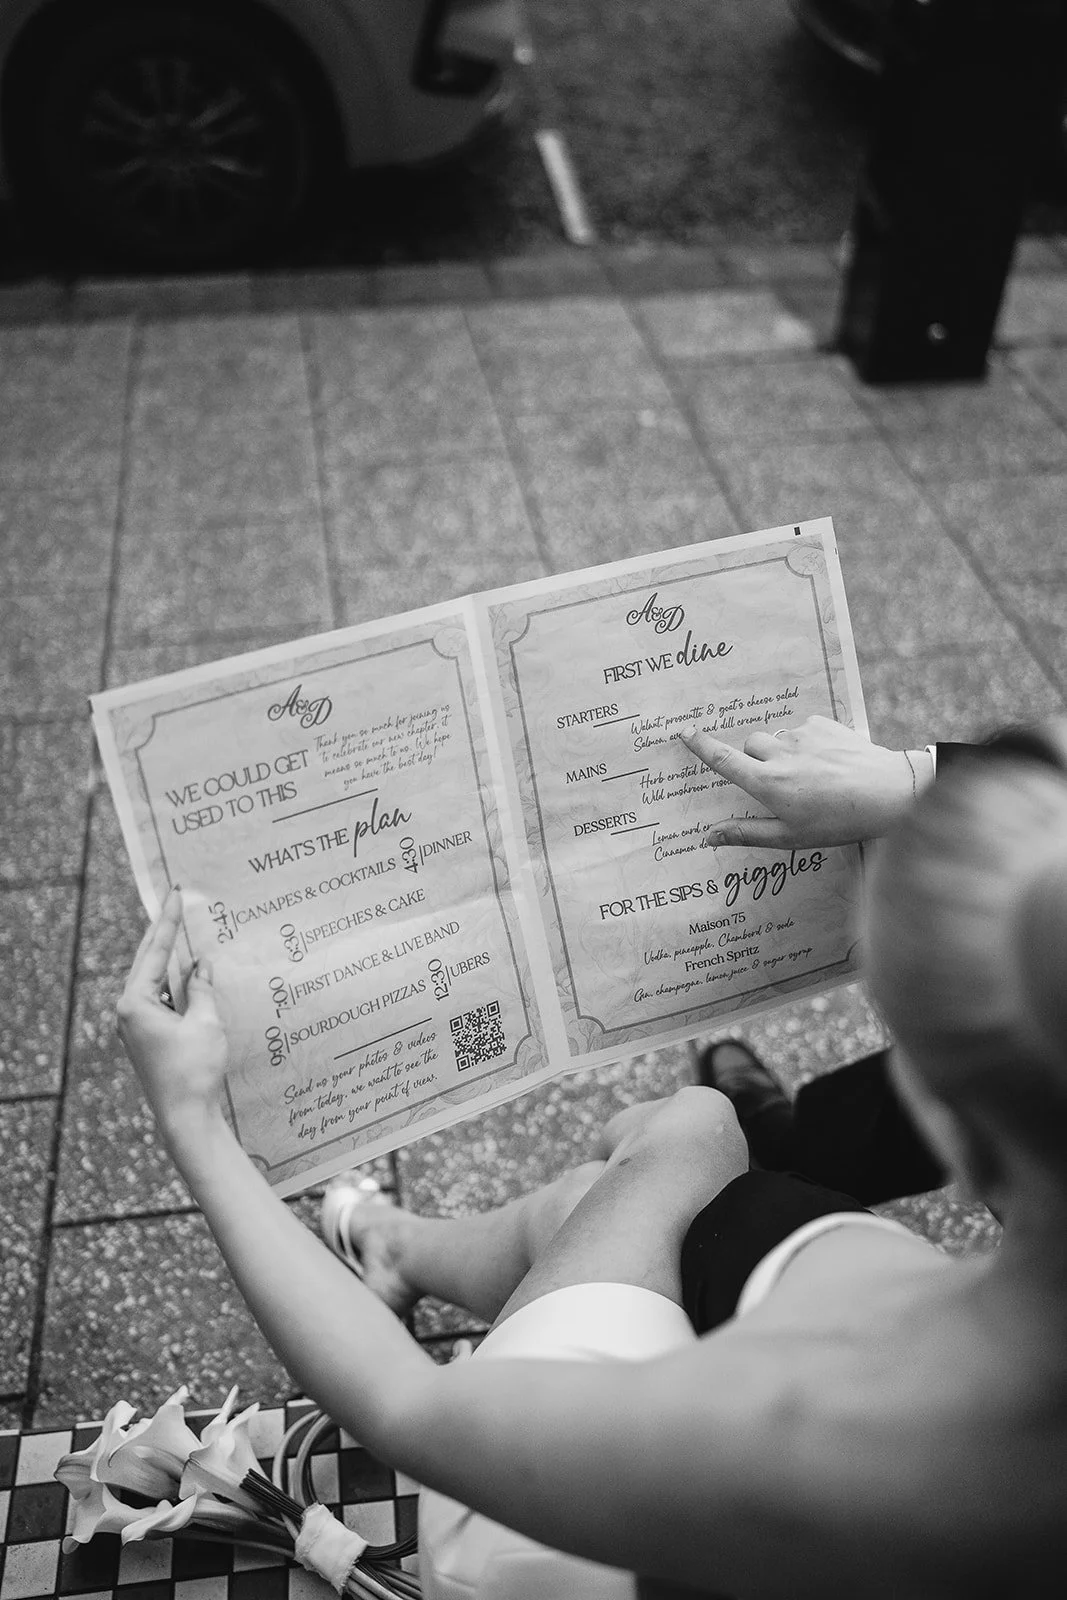 A&D
WE COULD GET
USED TO THIS
Thank you so much for joining us
to celebrate our new chapter, it
means so much to us. We hope
you have the best day!
WHAT'S THE plan
2:45 | CANAPES & COCKTAILS
4:30 | DINNER
6:30 | SPEECHES & CAKE
7:00 | FIRST DANCE & LIVE BAND
9:00 | SOURDOUGH PIZZAS
12:30 | UBERS
Send us your photos & videos
from today, we want to see the
day from your point of view.
A&D
FIRST WE dine
STARTERS
Walnut, prosciutto & goat's cheese salad
Salmon, and dill creme freiche
MAINS
Herb crusted
Wild mushroom
DESSERTS
Lemon curd
Cinnamon
FOR THE SIPS & giggles
Maison 75
Vodka, pineapple, Chambord & soda
French Spritz
Gin, champagne, lemon juice & sugar syrup